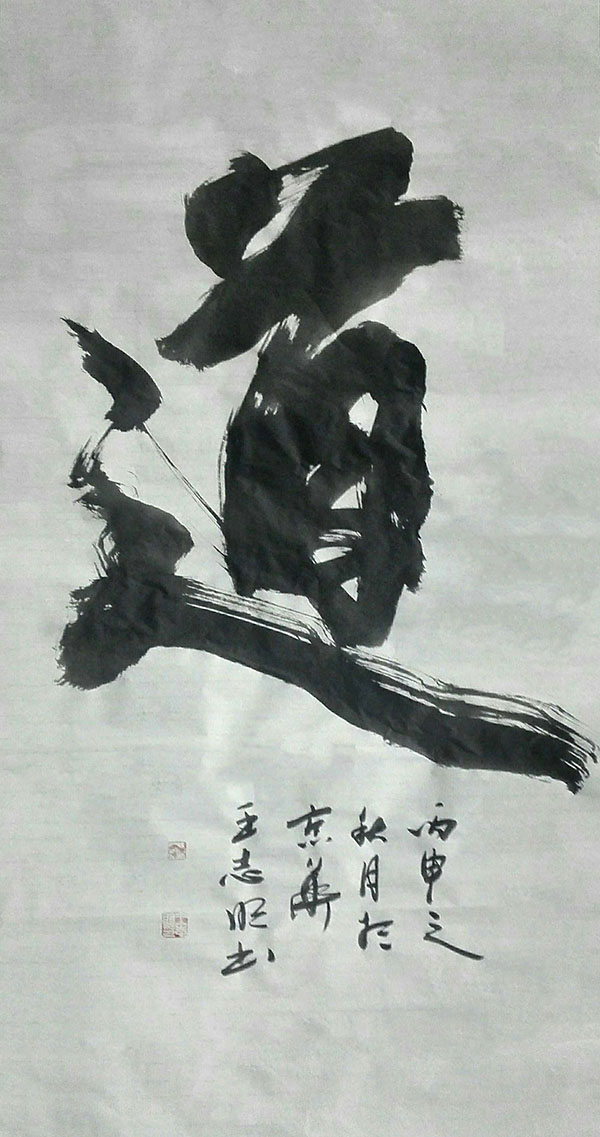 道
丙申之
秋月於
京華
王志昵书